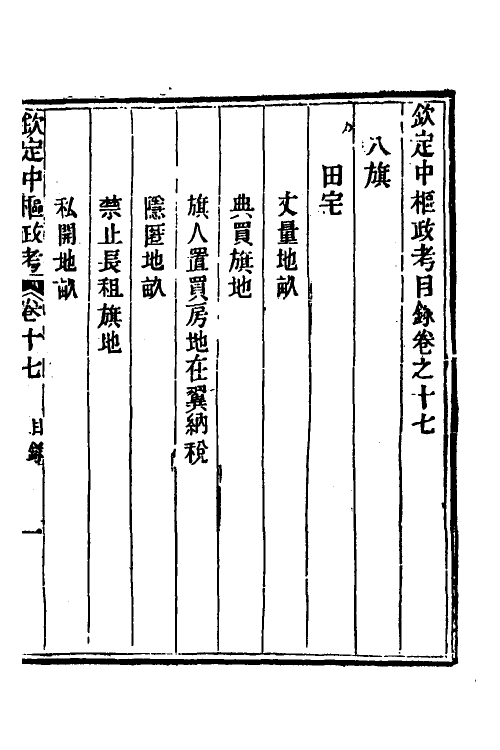 欽定中樞政考目錄卷之十七
八旗
田宅
丈量地畝
典買旗地
旗人置買房地在翼納稅
隱匿地畝
禁止長租旗地
私開地畝
欽定中樞政考
卷十七
目錄
一